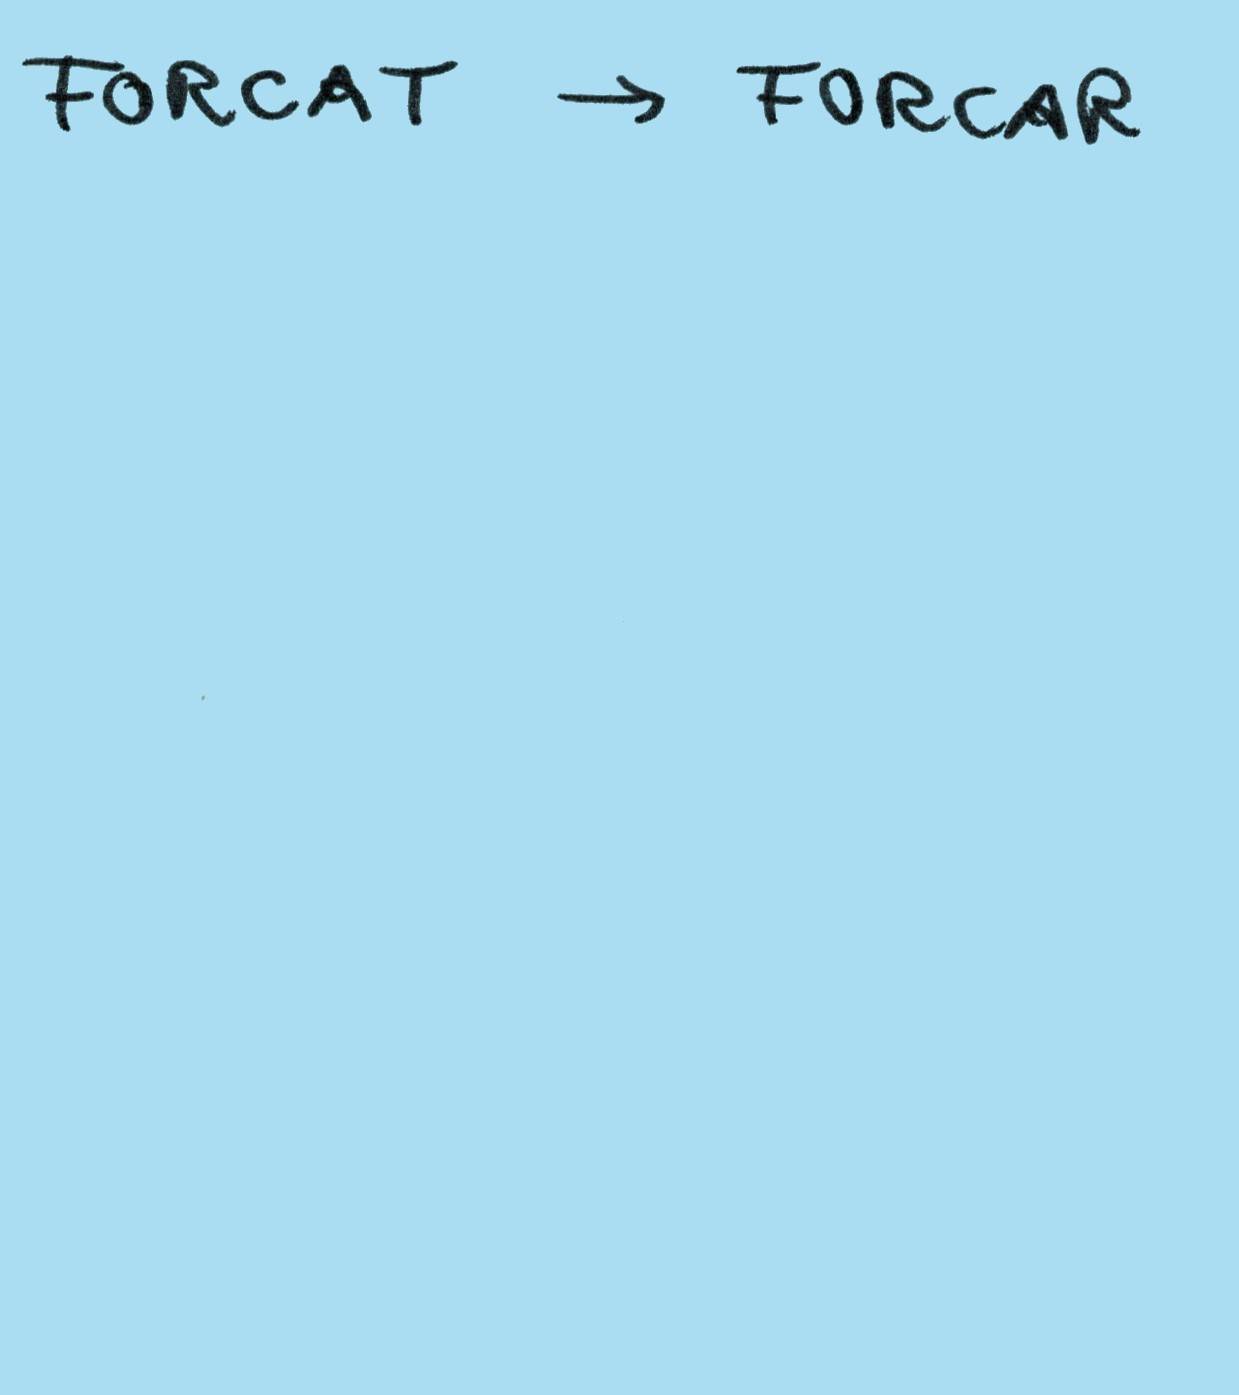 FORCAT → FORCAR